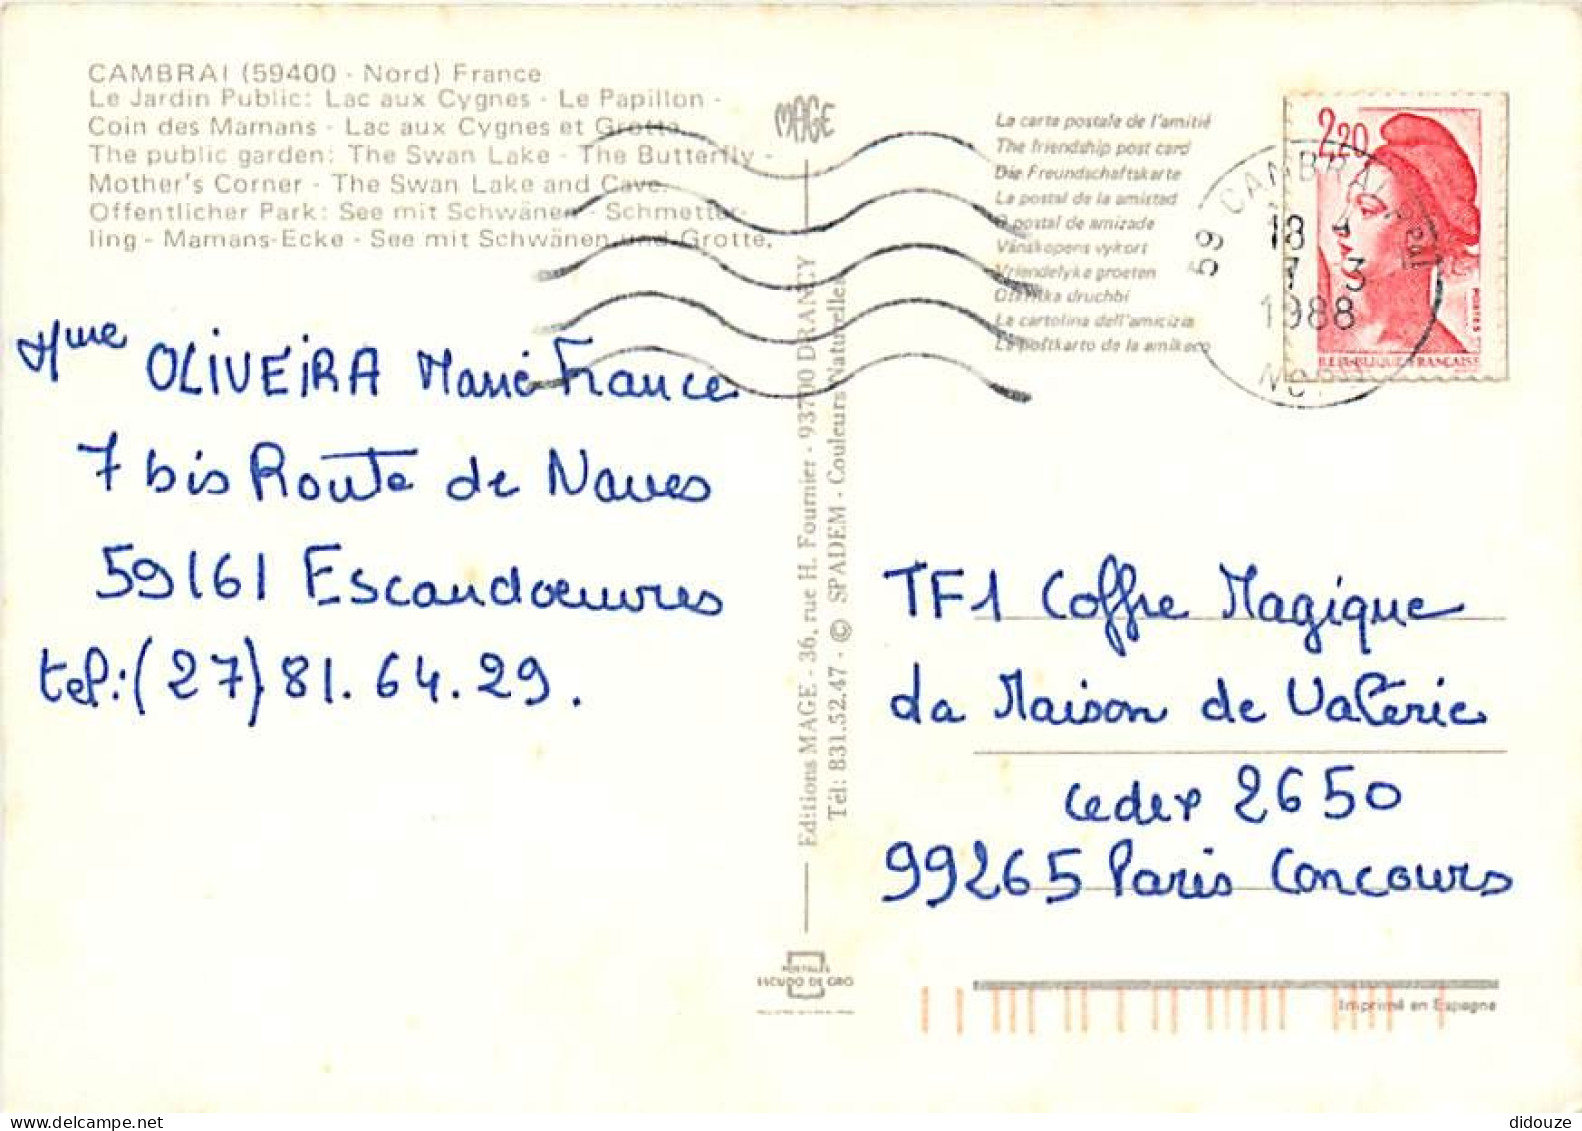 CAMBRAI (59400 - Nord) France
Le Jardin Public: Lac aux Cygnes - Le Papillon -
Coin des Mamans - Lac aux Cygnes et Grotte.
The public garden: The Swan Lake - The Butterfly -
Mother's Corner - The Swan Lake and Cave.
Offentlicher Park: See mit Schwänen - Schmetter-
ling - Mamans-Ecke - See mit Schwänen und Grotte.
MAGE
La carte postale de l'amitié
The friendship post card
Die Freundschaftskarte
La postal de la amistad
O postal de amizade
Vänskapens vykort
Vriendelyke groeten
druchbi
La cartolina dell'amicizia
La poŝtkarto de la amikeco
2,20
POSTES
REPUBLIQUE FRANÇAISE
59 CAMBRAI Ppal
18
7 - 3
1988
NORD
Mme OLIVEIRA Marie France
7 bis Route de Naves
59161 Escaudoeuvres
tel: (27) 81.64.29.
Editions MAGE - 36, rue H. Fournier - 93700 DRANCY
Tél: 831.52.47 - © SPADEM - Couleurs Naturelles
TF1 Coffre Magique
La Maison de Valérie
Cedex 2650
99265 Paris Concours
POSTALES
ESCUDO DE ORO
Imprimé en Espagne
didouze